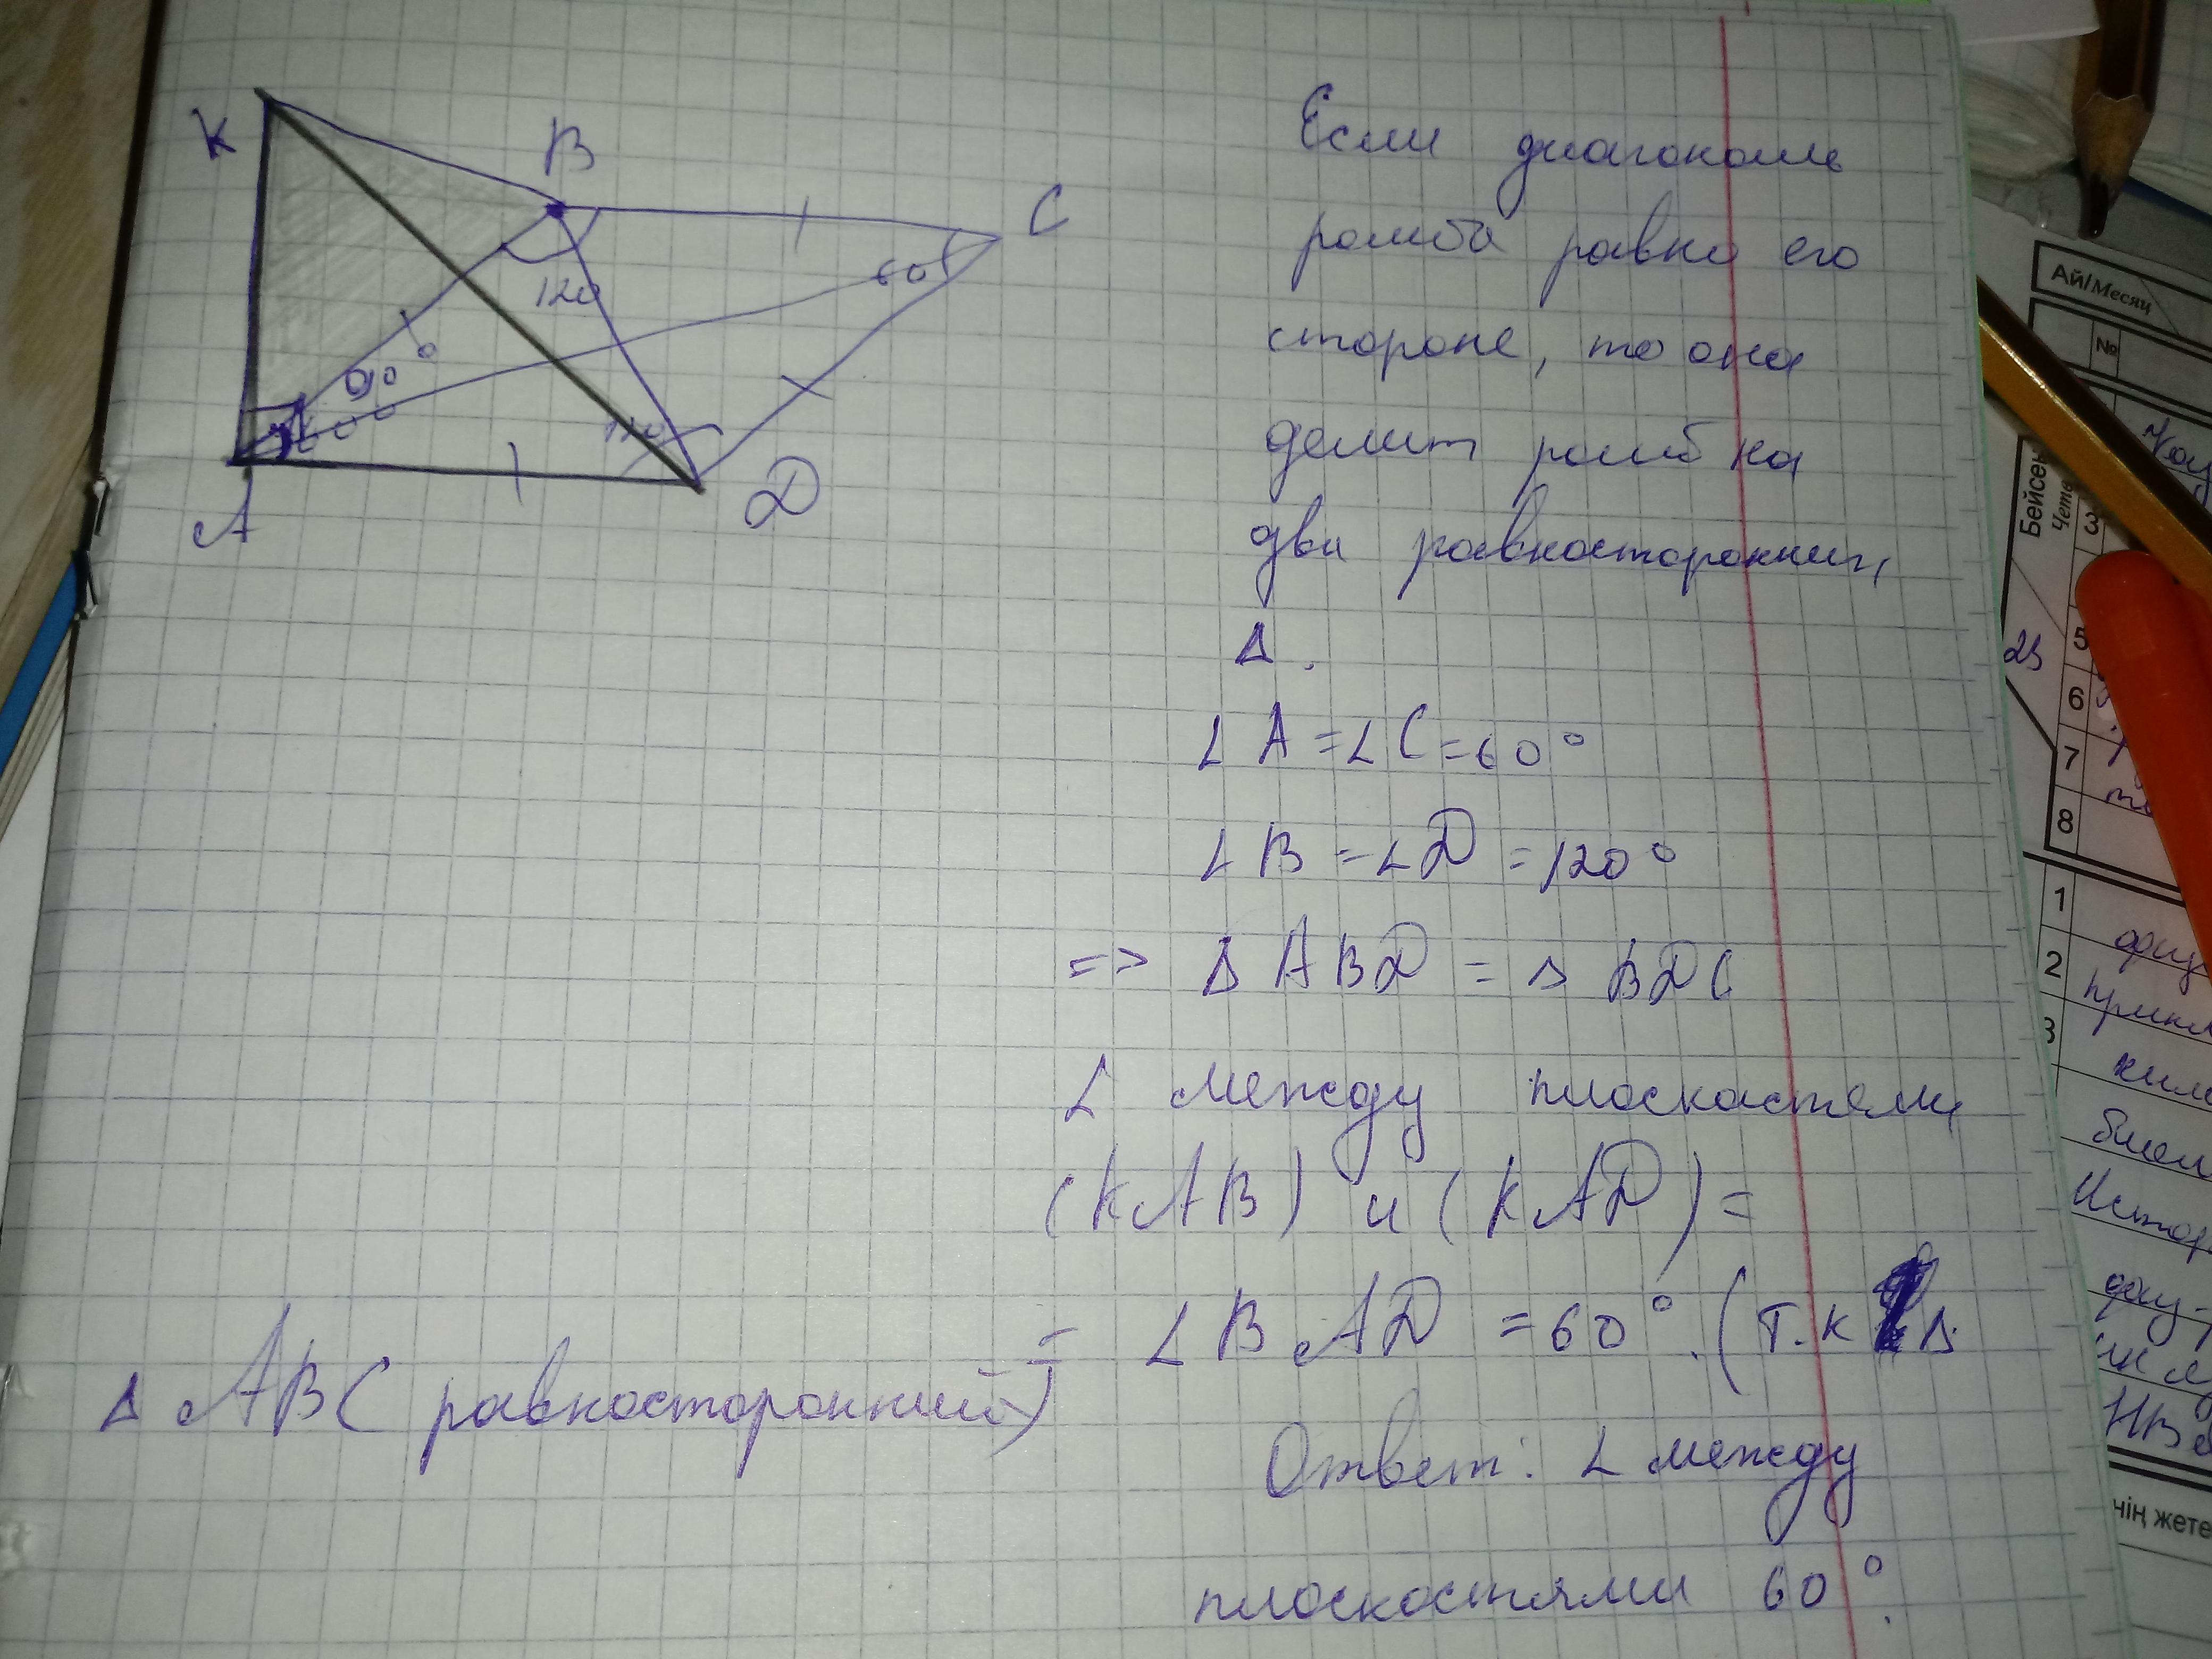 K
B
C
120
60
90°
60°
120
A
D
Если диагональ
ромба равна его
стороне, то она
делит ромб на
два равносторонних
Δ.
∠A = ∠C = 60°
∠B = ∠D = 120°
=> Δ ABD = Δ BDC
∠ между плоскостями
(KAB) и (KAD) =
= ∠BAD = 60°. (т.к Δ
Δ ABC равносторонний)
Ответ: ∠ между
плоскостями 60°.
Ай/Месяц
№
Бейсен
Четв
3
23
5
6
7
8
1
2
3
физ
нің жете